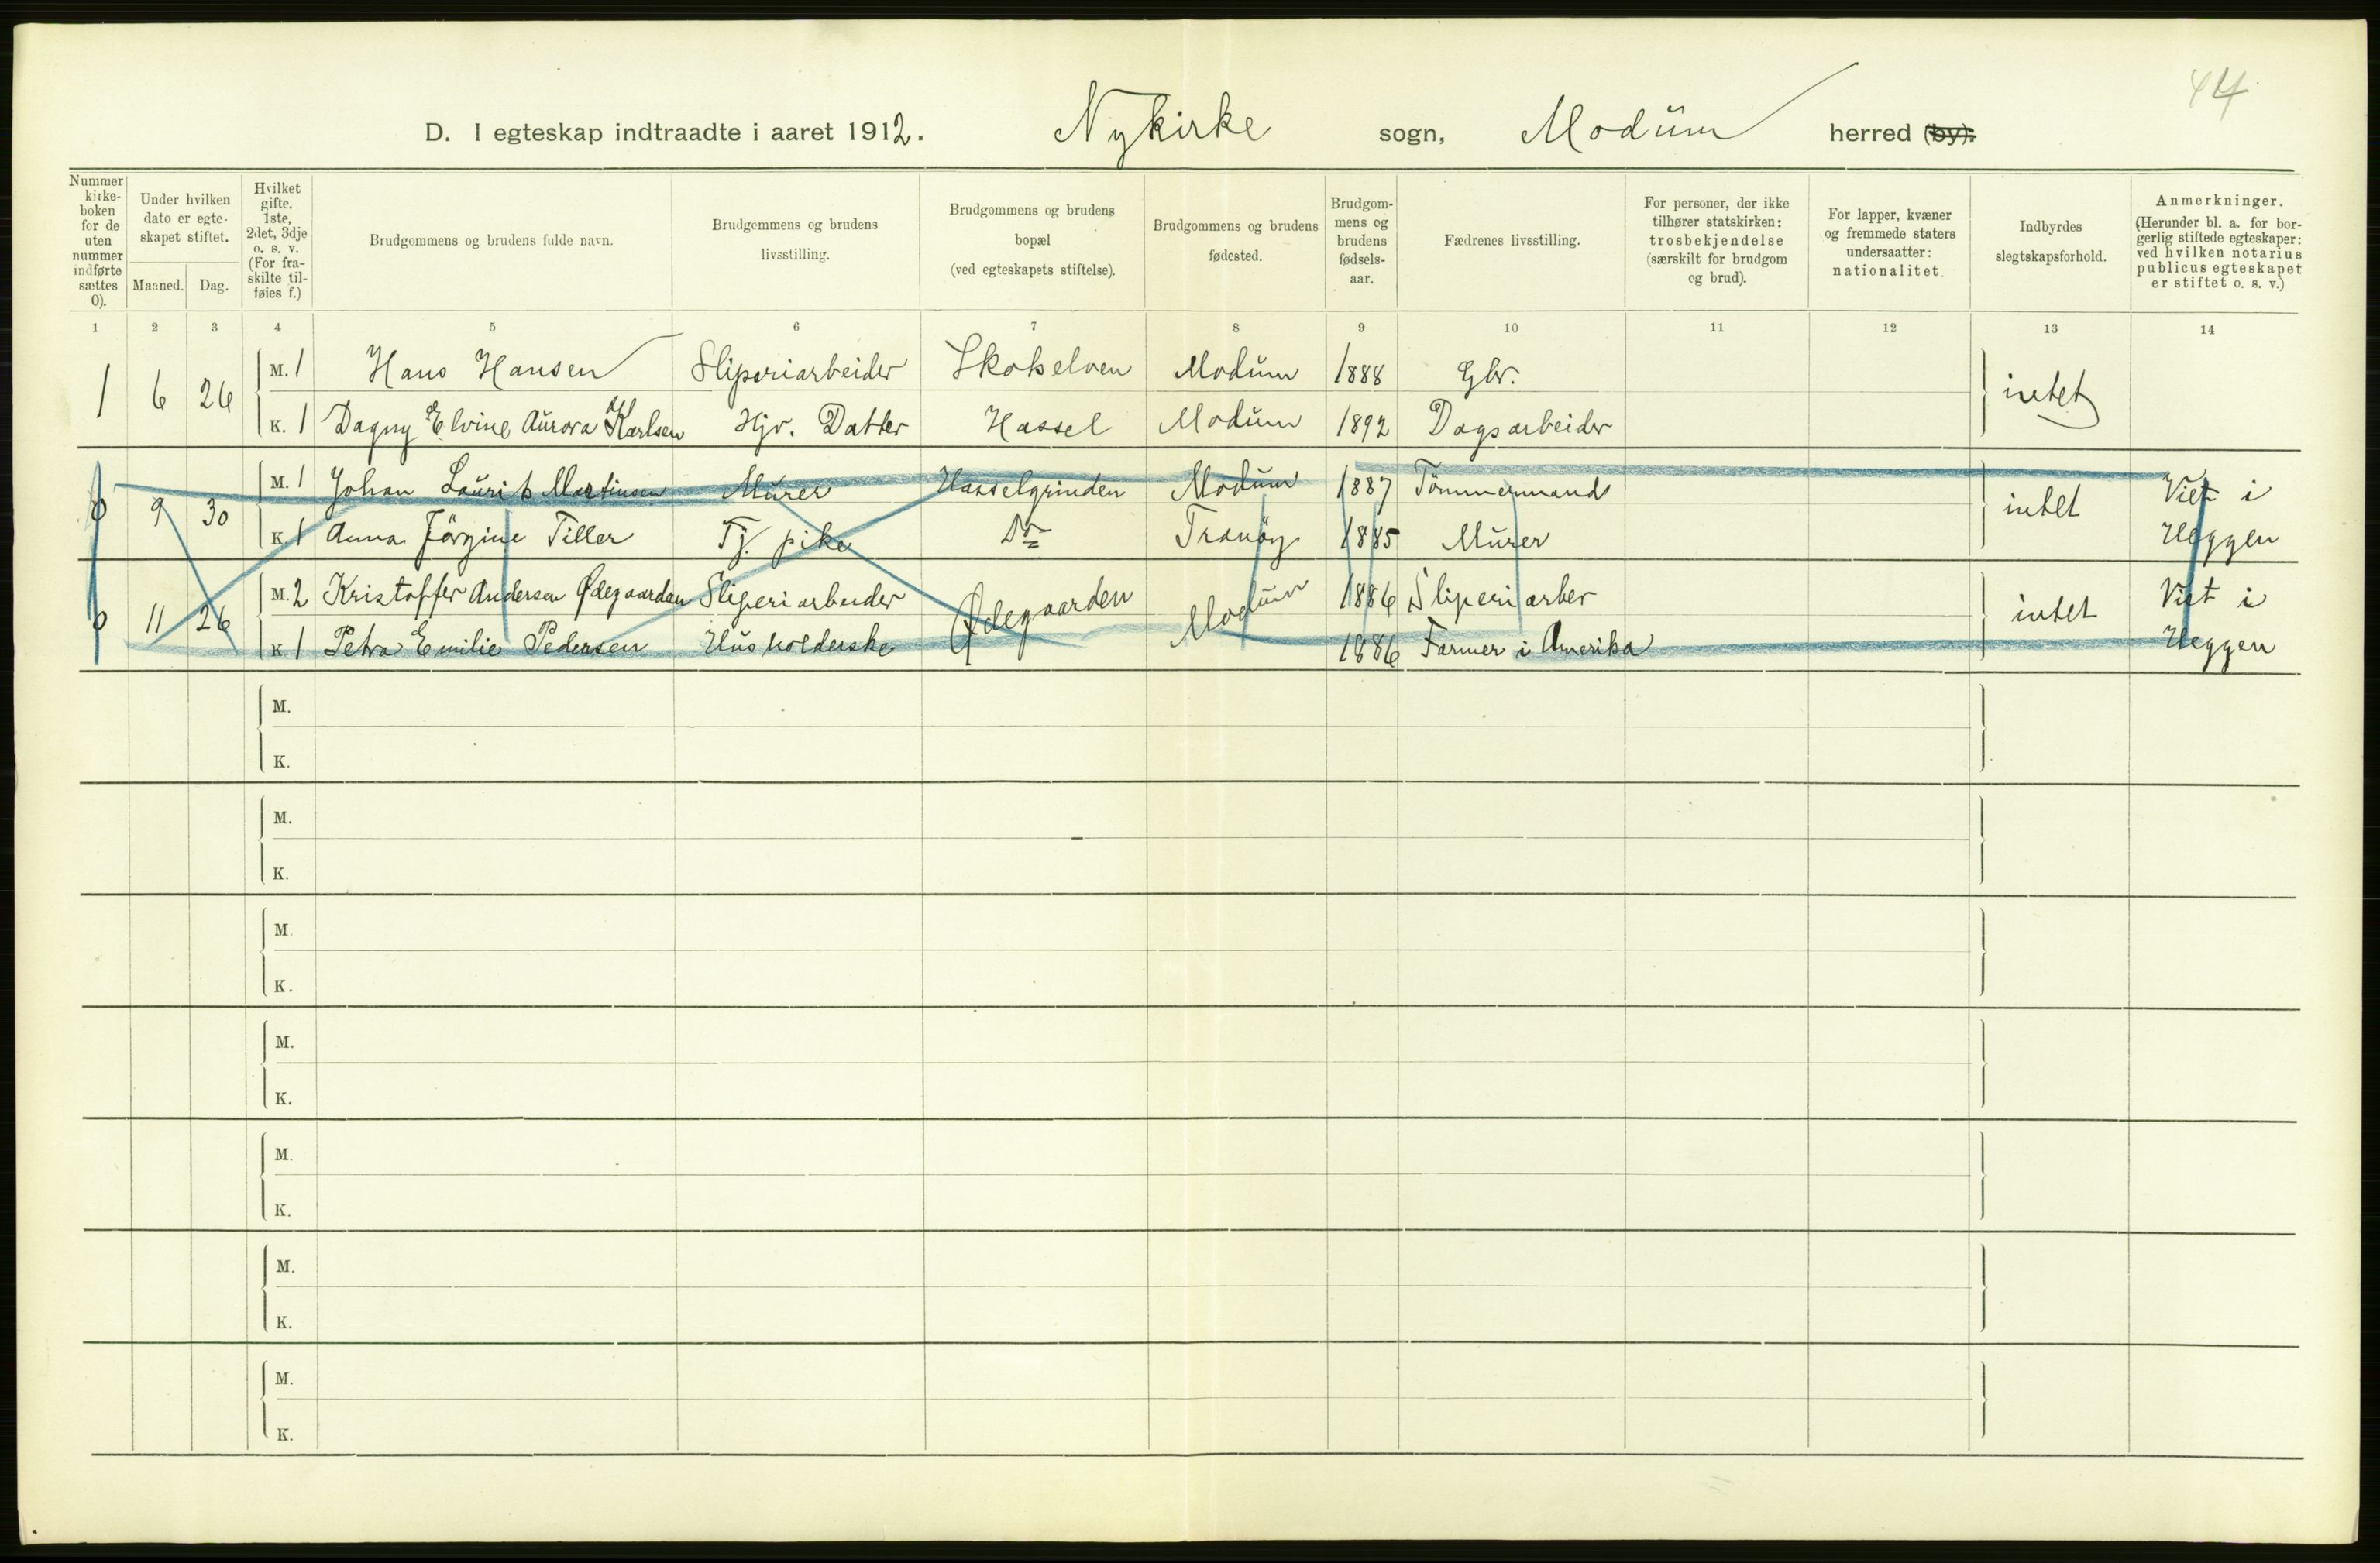 44
D. I egteskap indtraadte i aaret 1912. Nykirke sogn, Modum herred (by).
Nummer kirke-boken for de uten nummer indførte sættes 0).
Under hvilken dato er egte-skapet stiftet.
Maaned. Dag.
Hvilket gifte. 1ste, 2det, 3dje o. s. v. (For fra-skilte til-føies f.)
Brudgommens og brudens fulde navn.
Brudgommens og brudens livsstilling.
Brudgommens og brudens bopæl (ved egteskapets stiftelse).
Brudgommens og brudens fødested.
Brudgom-mens og brudens fødsels-aar.
Fædrenes livsstilling.
For personer, der ikke tilhører statskirken: trosbekjendelse (særskilt for brudgom og brud).
For lapper, kvæner og fremmede staters undersaatter: nationalitet.
Indbyrdes slegtskapsforhold.
Anmerkninger. (Herunder bl. a. for bor-gerlig stiftede egteskaper: ved hvilken notarius publicus egteskapet er stiftet o. s. v.)
1 2 3 4 5 6 7 8 9 10 11 12 13 14
1 6 26 M. 1 Hans Hansen Sliperiarbeider Skotselven Modum 1888 Gbr. intet
K. 1 Dagny Elvine Aurora Karlsen Hjv. Datter Hassel Modum 1892 Dagsarbeider
0 9 30 M. 1 Johan Laurits Martinsen Murer Hasselgrinden Modum 1887 Tömmermand intet Viet i
K. 1 Anna Jörgine Tiller Tj. pike Do Tranöy 1885 Murer Heggen
0 11 26 M. 2 Kristoffer Andersen Ødegaarden Sliperiarbeider Ødegaarden Modum 1886 Sliperiarber intet Viet i
K. 1 Petra Emilie Pedersen Husholderske 1886 Farmer i Amerika Heggen
M.
K.
M.
K.
M.
K.
M.
K.
M.
K.
M.
K.
M.
K.